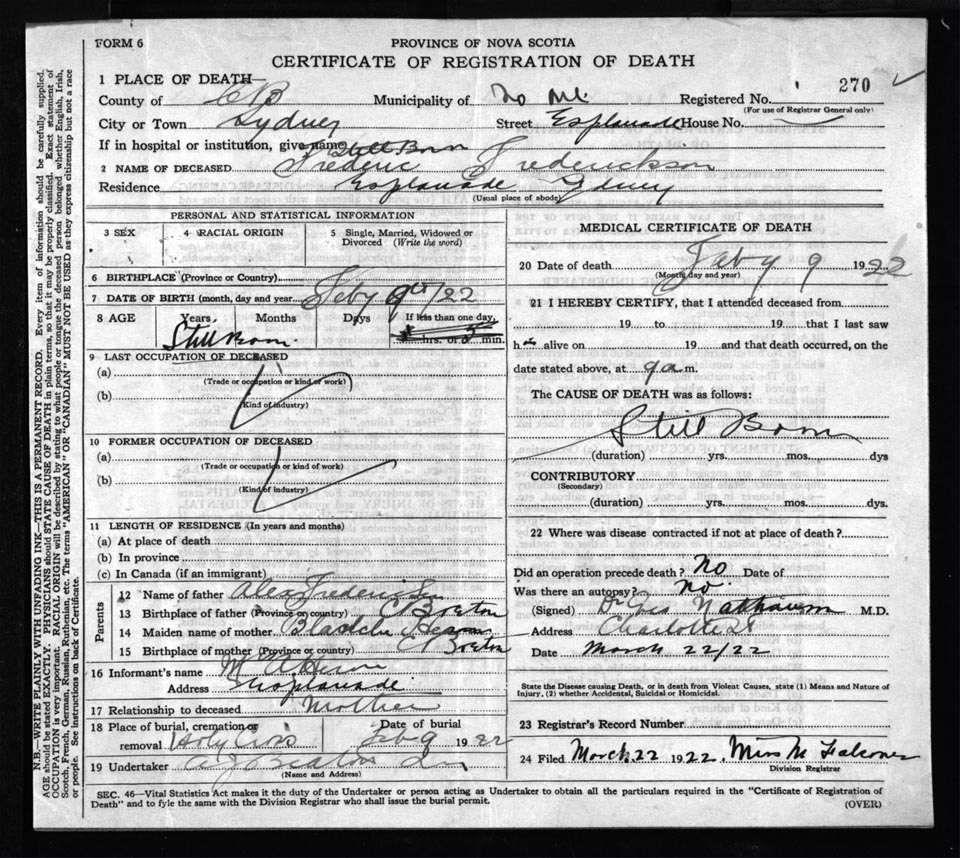 FORM 6
PROVINCE OF NOVA SCOTIA
CERTIFICATE OF REGISTRATION OF DEATH
270
1 PLACE OF DEATH—
County of C B Municipality of Registered No.
(For use of Registrar General only)
City or Town Sydney Street Esplanade House No.
If in hospital or institution, give name Still Born
2 NAME OF DECEASED Frederic Frederickson
Residence Esplanade Sydney
(Usual place of abode)
PERSONAL AND STATISTICAL INFORMATION
3 SEX 4 RACIAL ORIGIN 5 Single, Married, Widowed or Divorced (Write the word)
6 BIRTHPLACE (Province or Country)
7 DATE OF BIRTH (month, day and year) Feby 9th/22
8 AGE Years Months Days If less than one day,
Still Born hrs. or 5 min.
9 LAST OCCUPATION OF DECEASED
(a)
(Trade or occupation or kind of work)
(b)
(Kind of industry)
10 FORMER OCCUPATION OF DECEASED
(a)
(Trade or occupation or kind of work)
(b)
(Kind of industry)
11 LENGTH OF RESIDENCE (In years and months)
(a) At place of death
(b) In province
(c) In Canada (if an immigrant)
Parents
12 Name of father Alex
13 Birthplace of father (Province or country) C Breton
14 Maiden name of mother
15 Birthplace of mother (Province or country) C Breton
16 Informant's name
Address Esplanade
17 Relationship to deceased Mother
18 Place of burial, cremation or removal Holy Cross Date of burial Feb 9 1922
19 Undertaker
(Name and Address)
MEDICAL CERTIFICATE OF DEATH
20 Date of death Feby 9 1922
(Month, day and year)
21 I HEREBY CERTIFY, that I attended deceased from
19 to 19 that I last saw
h alive on 19 and that death occurred, on the
date stated above, at 9 a m.
The CAUSE OF DEATH was as follows:
Still Born
(duration) yrs. mos. dys
CONTRIBUTORY
(Secondary)
(duration) yrs. mos. dys.
22 Where was disease contracted if not at place of death?
Did an operation precede death? No Date of
Was there an autopsy? No.
(Signed) Dr M.D.
Address Charlotte St
Date March 22/22
State the Disease causing Death, or in death from Violent Causes, state (1) Means and Nature of
Injury, (2) whether Accidental, Suicidal or Homicidal.
23 Registrar's Record Number
24 Filed March 22 1922. Miss M Falconer
Division Registrar
SEC. 46—Vital Statistics Act makes it the duty of the Undertaker or person acting as Undertaker to obtain all the particulars required in the "Certificate of Registration of
Death" and to fyle the same with the Division Registrar who shall issue the burial permit.
(OVER)
N.B.—WRITE PLAINLY WITH UNFADING INK—THIS IS A PERMANENT RECORD. Every item of information should be carefully supplied.
AGE should be stated EXACTLY. PHYSICIANS should STATE CAUSE OF DEATH in plain terms, so that it may be properly classified. Exact statement of
OCCUPATION is very important. RACIAL ORIGIN will be described by stating to what people or tongue the deceased person belonged whether English, Irish,
Scotch, French, German, Russian, Ruthenian, etc. The terms "AMERICAN" or "CANADIAN" MUST NOT BE USED as they express citizenship but not a race
or people. See instructions on back of Certificate.